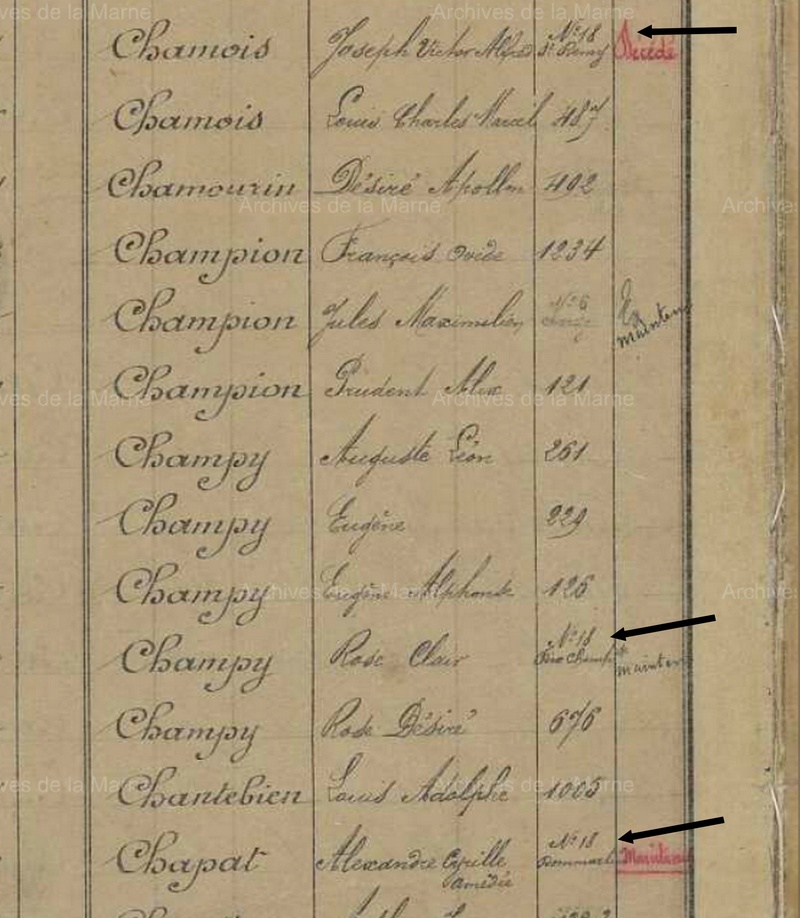 Archives de la Marne
Archives de la Marne
Chamois Joseph Victor Alfred N° 18 St Remy Décédé
Chamois Louis Charles Marcel 487
Chamourin Désiré Apollon 492
Archives de la Marne
Champion François Ovide 1234
Champion Jules Maximilien N° 6 mainten
Champion Prudent Alex 121
Archives de la Marne
Champy Auguste Léon 261
Champy Eugène 229
Champy Eugène Alphonse 126
Archives de la Marne
Champy Rose Clair N° 18 mainten
Champy Rose Désiré 676
Chantebien Louis Adolphe 1005
Archives de la Marne
Chapat Alexandre Cyrille N° 18 Mainten
Amédée